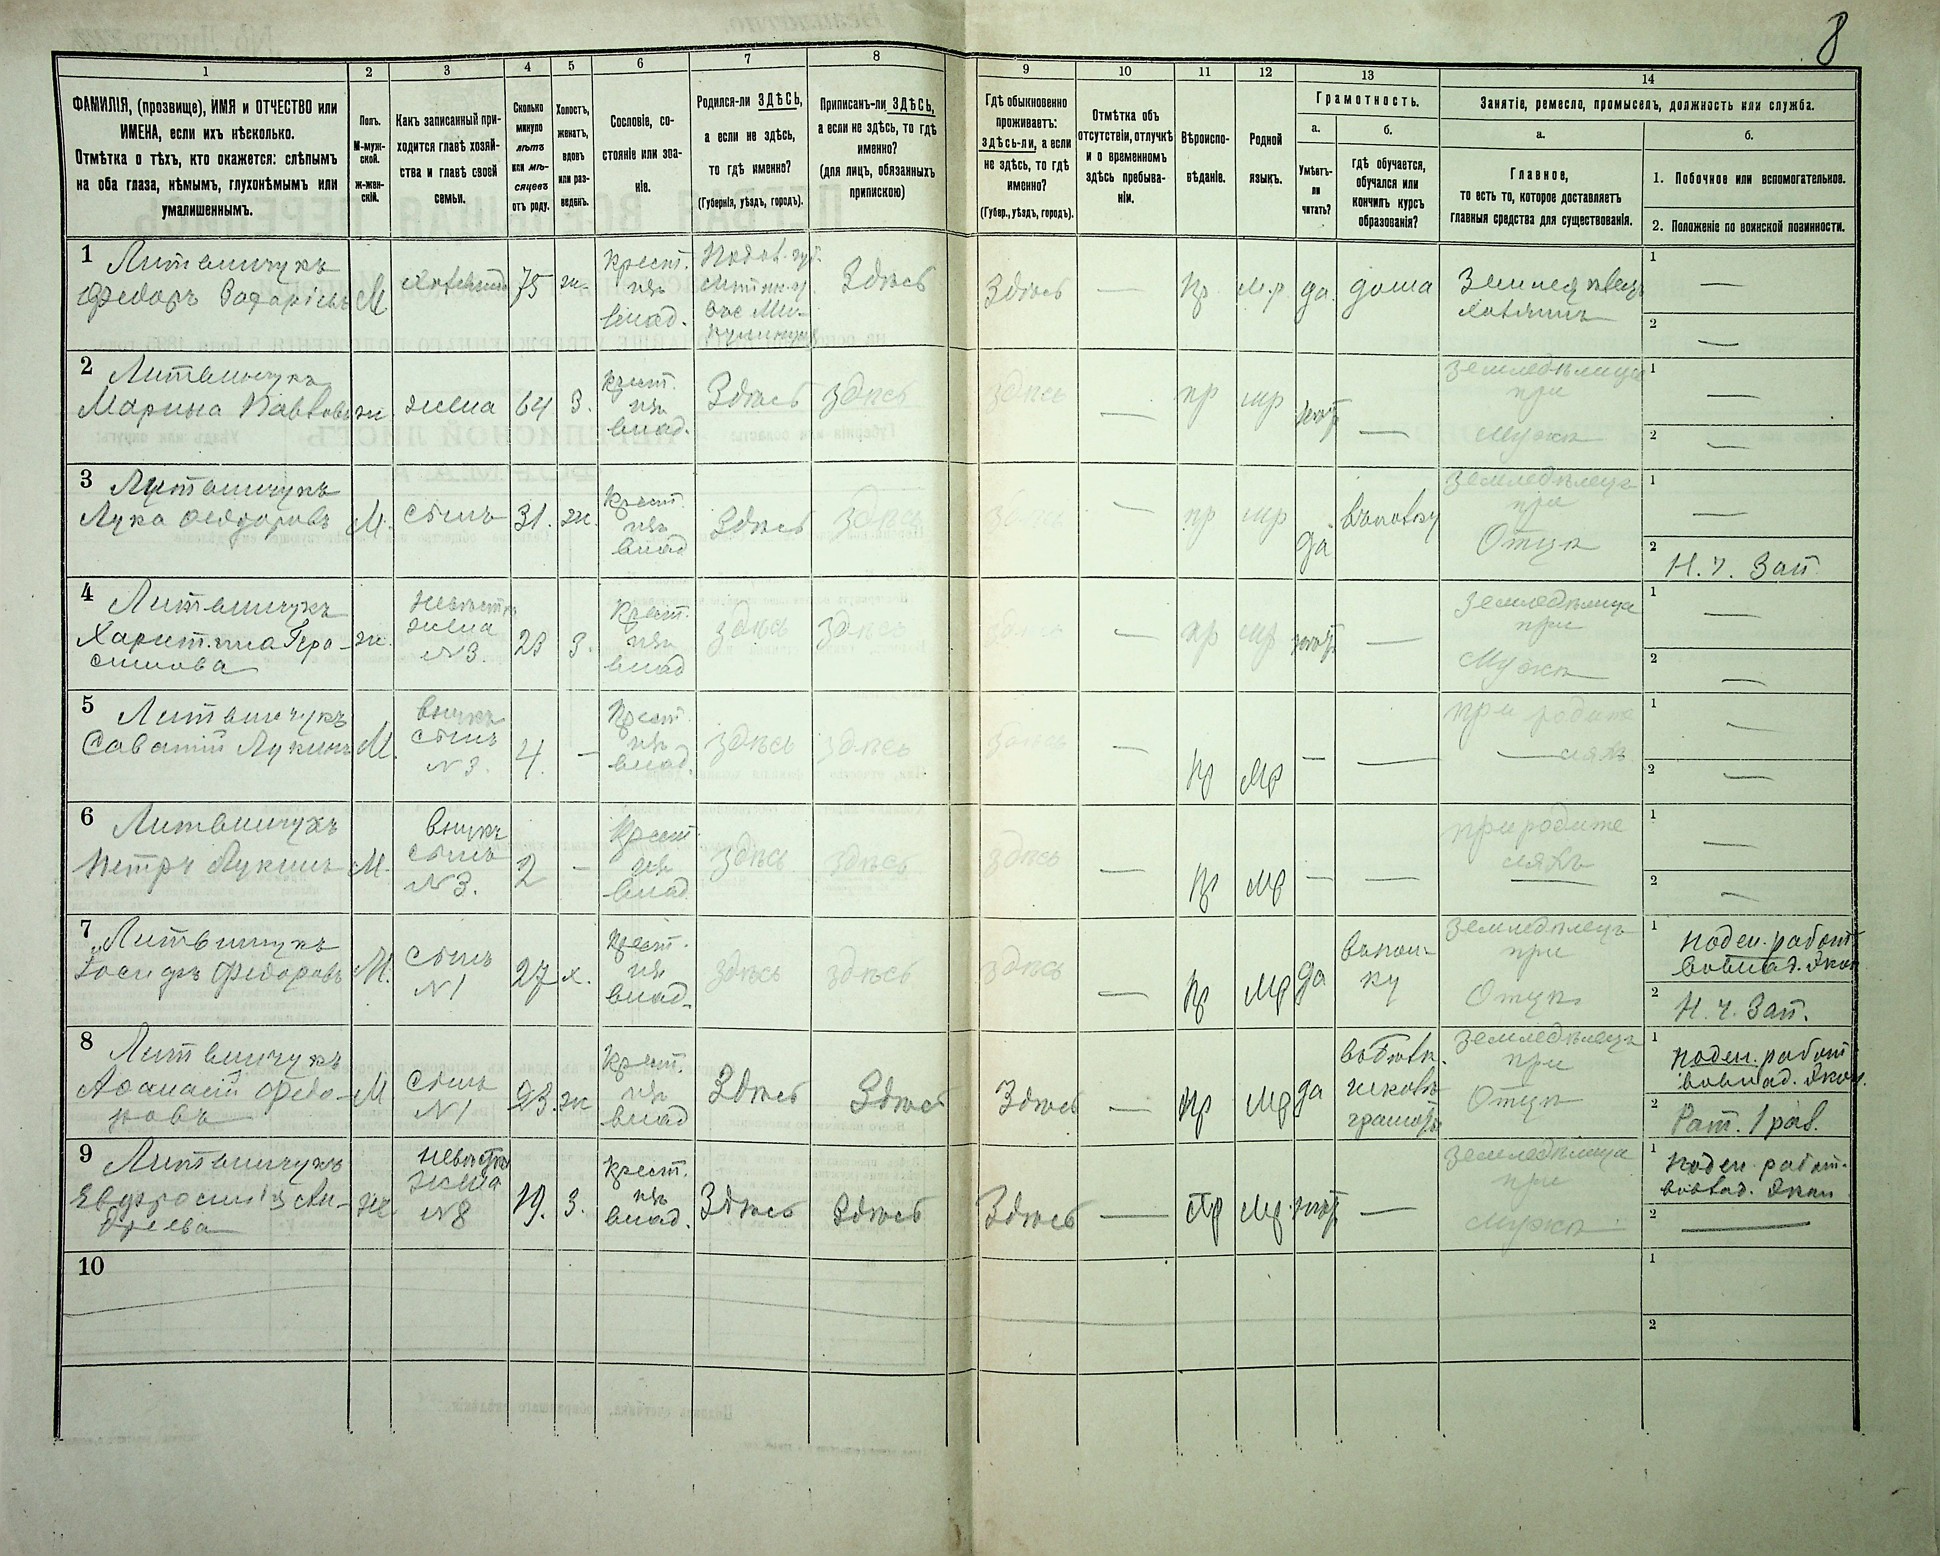 8
1
2
3
4
5
6
7
8
9
10
11
12
13
14
ФАМИЛІЯ, (прозвище), ИМЯ и ОТЧЕСТВО или
ИМЕНА, если ихъ нѣсколько.
Отмѣтка о тѣхъ, кто окажется: слѣпымъ
на оба глаза, нѣмымъ, глухонѣмымъ или
умалишеннымъ.
Полъ.
М-муж-
ской.
ж-жен-
скій.
Какъ записанный при-
ходится главѣ хозяй-
ства и главѣ своей
семьи.
Сколько
минуло
лѣтъ
или мѣ-
сяцевъ
отъ роду.
Холостъ,
женатъ,
вдовъ
или раз-
веденъ.
Сословіе, со-
стояніе или зва-
ніе.
Родился-ли ЗДѢСЬ,
а если не здѣсь,
то гдѣ именно?
(Губернія, уѣздъ, городъ).
Приписанъ-ли ЗДѢСЬ,
а если не здѣсь, то гдѣ
именно?
(для лицъ, обязанныхъ
припискою)
Гдѣ обыкновенно
проживаетъ:
здѣсь-ли, а если
не здѣсь, то гдѣ
именно?
(Губер., уѣздъ, городъ).
Отмѣтка объ
отсутствіи, отлучкѣ
и о временномъ
здѣсь пребыва-
ніи.
Вѣроиспо-
вѣданіе.
Родной
языкъ.
Грамотность.
а.
Умѣетъ-
ли
читать?
б.
гдѣ обучается,
обучался или
кончилъ курсъ
образованія?
Занятіе, ремесло, промыселъ, должность или служба.
а.
Главное,
то есть то, которое доставляетъ
главныя средства для существованія.
б.
1. Побочное или вспомогательное.
2. Положеніе по воинской повинности.
1
Литвинчукъ
Федоръ
М.
75
ж.
Крест.
изъ
влад.
Здѣсь
Здѣсь
—
пр
м.р.
да.
дома
1
—
2
—
2
Литвинчукъ
Марина
ж
жена
64
З.
Крест.
изъ
влад.
Здѣсь
здѣсь
здѣсь
—
пр
мр
—
земледѣлица
при
мужѣ
1
—
2
—
3
Литвинчукъ
Лука Федоровъ
М.
сынъ
31.
ж.
Крест.
изъ
влад
Здѣсь
здѣсь
—
пр
мр
да
земледѣлецъ
при
Отцѣ
1
—
2
Н. ч. Зап
4
Литвинчукъ
Харитина Гера-
симова
ж.
невѣстка
жена
№3.
23
З.
Крест.
изъ
влад
здѣсь
здѣсь
—
пр
мр
—
земледѣлица
при
Мужѣ
1
—
2
—
5
Литвинчукъ
Саватій Лукинъ
М.
внукъ
сынъ
№3.
4.
—
Крест.
изъ
влад.
здѣсь
здѣсь
здѣсь
—
пр
мр
—
—
при родите
ляхъ
1
—
2
—
6
Литвинчукъ
Петръ Лукинъ
М.
внукъ
сынъ
№3.
2
—
Крест
изъ
влад.
здѣсь
здѣсь
здѣсь
—
пр
мр
—
—
при родите
ляхъ
1
—
2
—
7
Литвинчукъ
Іосифъ Федоровъ
М.
сынъ
№1
27
х.
Крест.
изъ
влад.
здѣсь
здѣсь
здѣсь
—
пр
мр
да
земледѣлецъ
при
Отцѣ
1
поден. работ
2
Н. ч. Зап.
8
Литвинчукъ
Афанасій Федо-
ровъ
М
сынъ
№1
23.
ж
Крест.
изъ
влад
Здѣсь
Здѣсь
Здѣсь
—
пр
мр
да
земледѣлецъ
при
Отцѣ
1
поден. работ
2
Рат. 1 раз.
9
Литвинчукъ
Евфросинія Ан-
дреева
ж.
невѣстка
жена
№8
19.
З.
Крест.
изъ
влад.
Здѣсь
Здѣсь
Здѣсь
—
пр
мр.
—
земледѣлица
при
мужѣ
1
поден. работ.
2
—
10
1
2